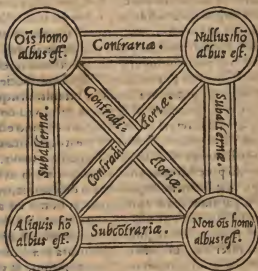 Oĩs homo
albus est.
Contrariæ.
Nullus hõ
albus est.
Subalternæ.
Contradi-
ctoriæ.
Contradi-
ctoriæ.
Subalternæ.
Aliquis hõ
albus est.
Subcõtrariæ.
Non oĩs homo
albus est.